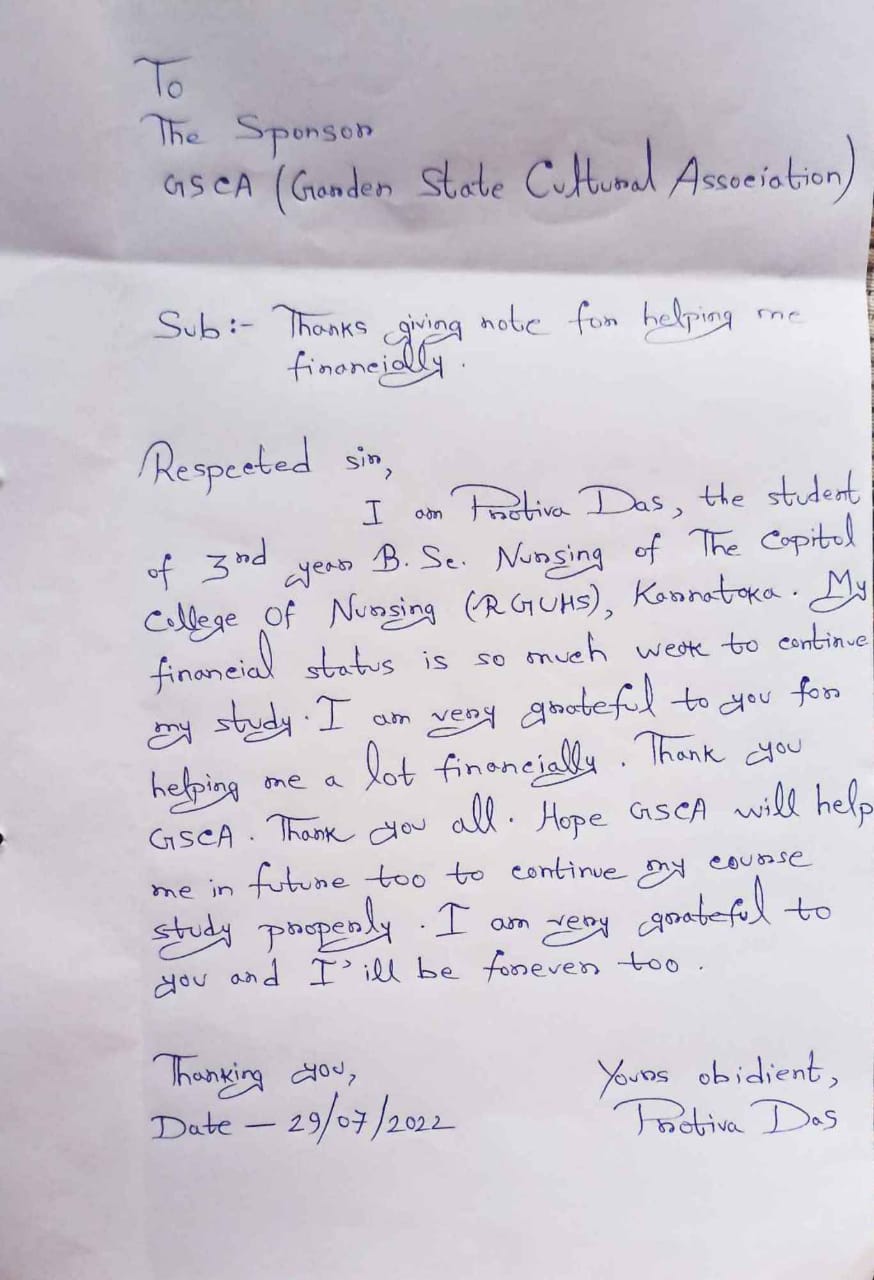 To
The Sponsor
GSCA (Garden State Cultural Association)
Sub:- Thanks giving note for helping me
financially.
Respected sir,
I am Protiva Das, the student
of 3rd year B. Sc. Nursing of The Capitol
College Of Nursing (RGUHS), Karnataka. My
financial status is so much weak to continue
my study. I am very grateful to you for
helping me a lot financially. Thank you
GSCA. Thank you all. Hope GSCA will help
me in future too to continue my course
study properly. I am very grateful to
you and I'ill be forever too.
Thanking you,
Date – 29/07/2022
Yours obidient,
Protiva Das